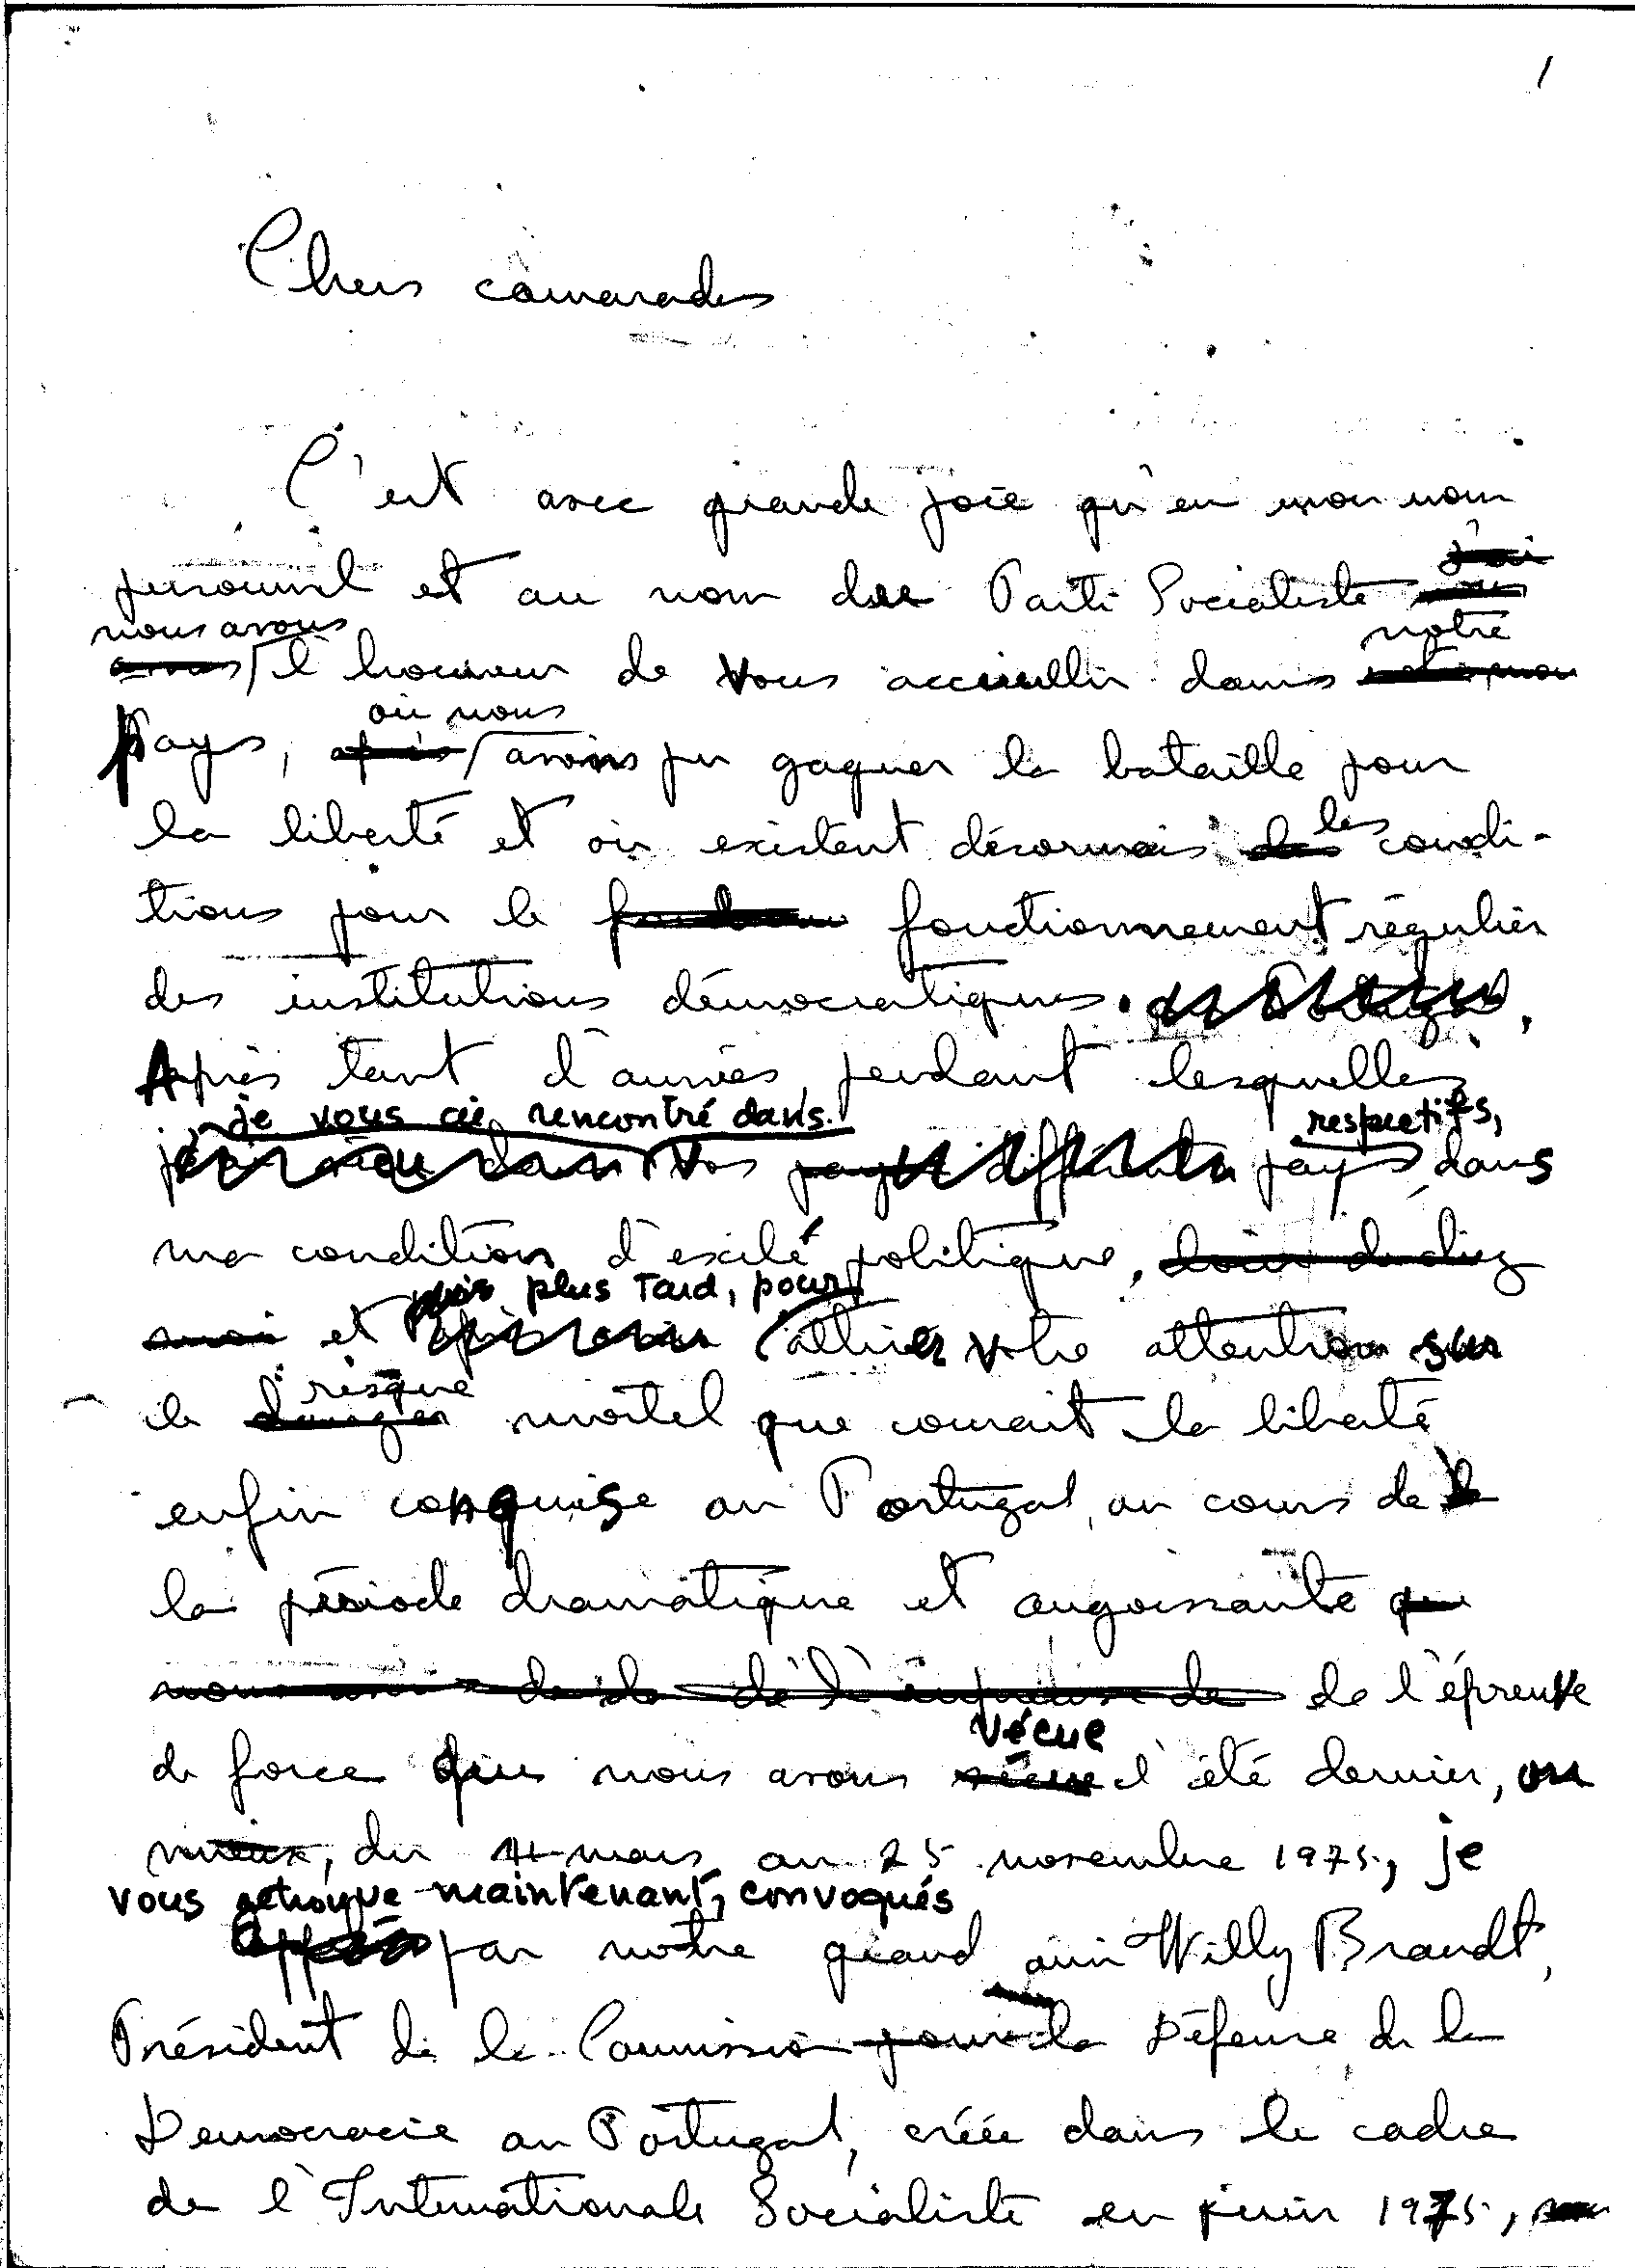 1
Chers camarades
C'est avec grande joie qu'en mon nom
personnel et au nom du Parti Socialiste
nous avons l'honneur de vous accueillir dans notre
pays, où nous avons pu gagner la bataille pour
la liberté et où existent désormais les condi-
tions pour le fonctionnement régulier
des institutions démocratiques.
Après tant d'années, pendant lesquelles
je vous ai rencontré dans vos pays respectifs, dans
ma condition d'exilé politique,
et puis plus tard, pour attirer votre attention sur
le risque mortel que courait la liberté
enfin conquise au Portugal, au cours de
la période dramatique et angoissante
de l'épreuve
de force que nous avons vécue l'été dernier, ou
mieux, du 11 mars au 25 novembre 1975, je
vous retrouve maintenant, convoqués
par notre grand ami Willy Brandt,
Président de la Commission la Défense de la
Democracie au Portugal, créée dans le cadre
de l'Internationale Socialiste en juin 1975,